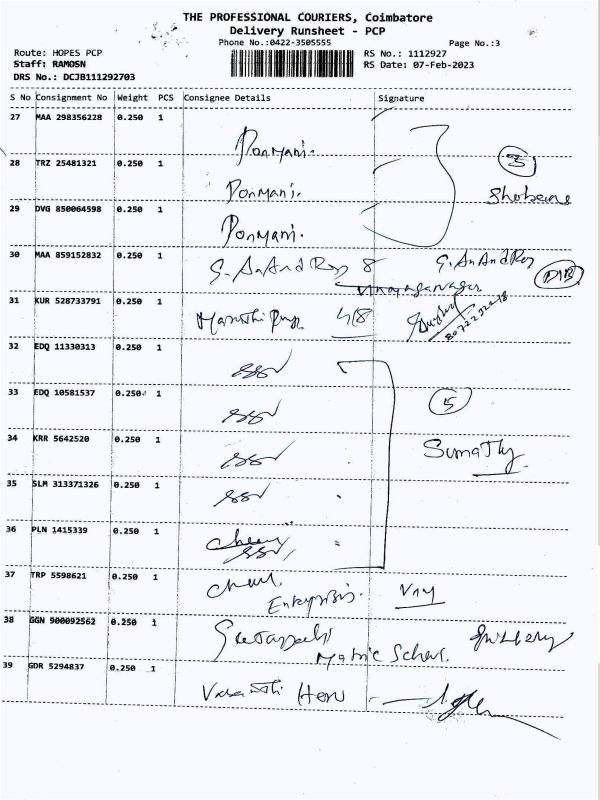 THE PROFESSIONAL COURIERS, Coimbatore
Delivery Runsheet - PCP
Phone No.:0422-3505555
Page No.:3
Route: HOPES PCP
RS No.: 1112927
Staff: RAMOSN
RS Date: 07-Feb-2023
DRS No.: DCJB111292703
S No Consignment No Weight PCS Consignee Details Signature
27 MAA 298356228 0.250 1
Ponmani.
28 TRZ 25481321 0.250 1
3
Ponmani.
29 DVG 850064598 0.250 1
Ponmani.
30 MAA 859152832 0.250 1
G. AnAnd Roy 8 G. AnAnd Roy
31 KUR 528733791 0.250 1
4/8
32 EDQ 11330313 0.250 1
SSV
33 EDQ 10581537 0.250 1
SSV
5
34 KRR 5642520 0.250 1
SSV
Sumathy
35 SLM 313371326 0.250 1
SSV
36 PLN 1415339 0.250 1
SSV
37 TRP 5598621 0.250 1
38 GGN 900092562 0.250 1
Matric School.
39 GDR 5294837 0.250 1